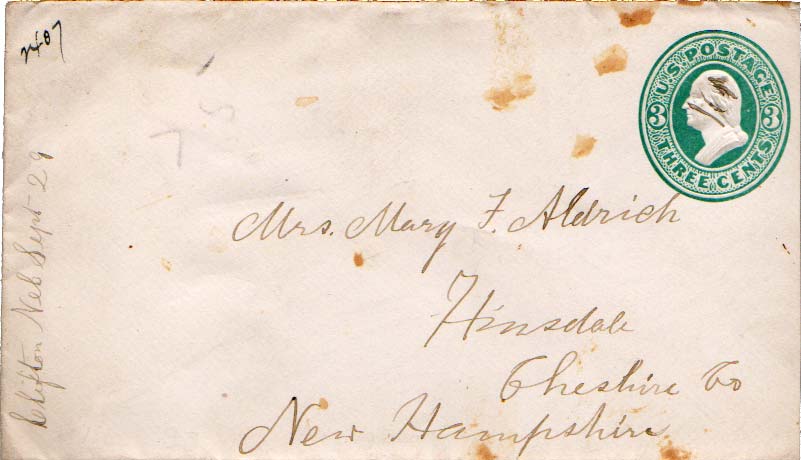 2407
U.S. POSTAGE
3 3
THREE CENTS
Mrs. Mary F. Aldrich
Hinsdale
Cheshire Co
New Hampshire
Clifton Neb Sept-29